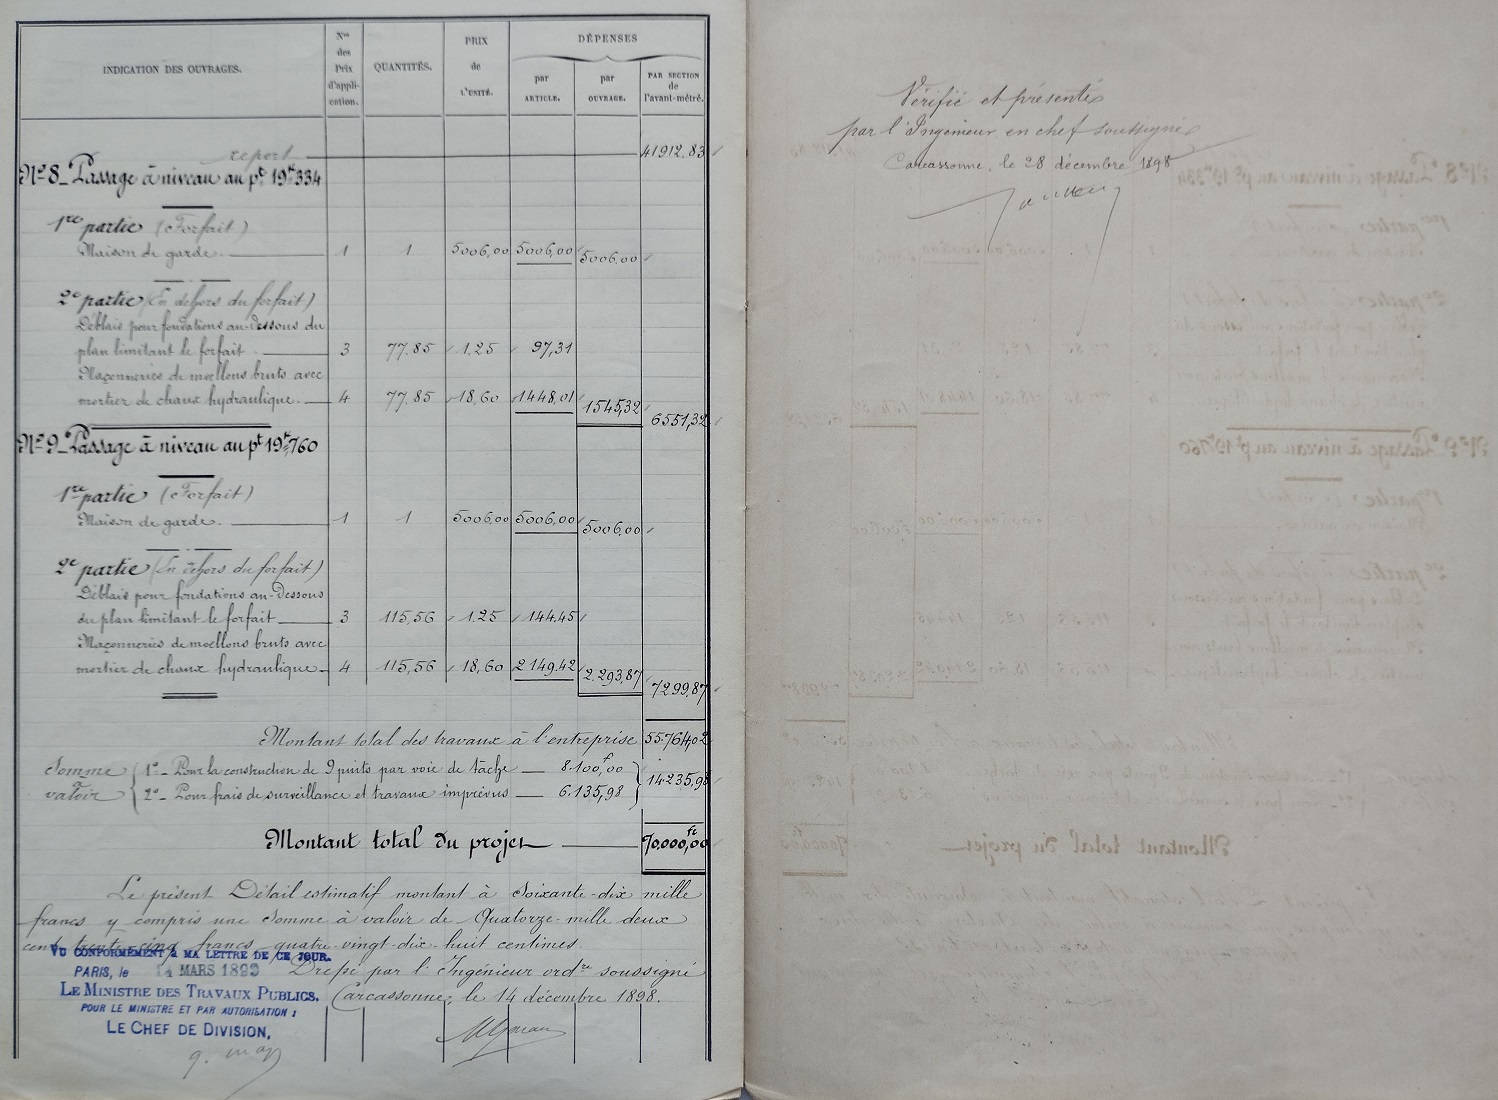 INDICATION DES OUVRAGES. Nos des Prix d'application. QUANTITÉS. PRIX de L'UNITÉ. DÉPENSES
par ARTICLE. par OUVRAGE. PAR SECTION de l'avant-métré.
report 41912.83
No 8_ Passage à niveau au pt 19k334
1re partie (Forfait)
Maison de garde. 1 1 5006,00 5006,00 5006,00
2e partie (En dehors du forfait)
Déblais pour fondations au-dessous du
plan limitant le forfait 3 77.85 1.25 97,31
Maçonneries de moellons bruts avec
mortier de chaux hydraulique. 4 77.85 18,60 1448,01 1545,32 6551,32
No 9_ Passage à niveau au pt 19k,760
1re partie (Forfait)
Maison de garde. 1 1 5006,00 5006,00 5006,00
2e partie (En dehors du forfait)
Déblais pour fondations au-dessous
du plan limitant le forfait 3 115,56 1.25 144.45
Maçonneries de moellons bruts avec
mortier de chaux hydraulique 4 115,56 18,60 2149.42 2.293,87 7299,87
Montant total des travaux à l'entreprise 55.764.02
Somme à valoir { 1o_ Pour la construction de 9 puits par voie de tâche 8.100f,00
2o_ Pour frais de surveillance et travaux imprévus 6.135,98 } 14235,98
Montant total du projet 70.000fr,00
Le présent Détail estimatif montant à Soixante-dix mille
francs y compris une Somme à valoir de Quatorze-mille deux
cent trente-cinq francs, quatre-vingt-dix-huit centimes.
VU CONFORMÉMENT à MA LETTRE DE CE JOUR.
PARIS, le 14 MARS 1899
LE MINISTRE DES TRAVAUX PUBLICS.
POUR LE MINISTRE ET PAR AUTORISATION :
LE CHEF DE DIVISION,
Dressé par l'Ingénieur ordre soussigné
Carcassonne, le 14 décembre 1898.
Vérifié et présenté
par l'Ingénieur en chef soussigné
Carcassonne, le 28 décembre 1898